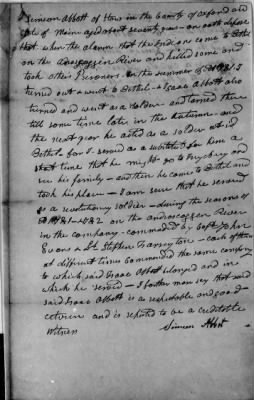 Simeon Abbott of Stow in the County of Oxford and
State of Maine aged about seventy years - on oath depose
that when the alarm that the Indians come to Bethel
on the Androscoggin River and killed some and
took other Prisoners - In the summer of 1781 I
turned out & went to Bethel - Isaac Abbott also
turned and went as a soldier - and tarried there
till some time late in the Autumn - and
the next year he acted as a soldier at sd
Bethel - for I served as a substitute for him a
short time that he might go to Fryeburg and
see his family - and then he come to Bethel and
took his place - I am sure that he served
as a revolutionary soldier - during the seasons of
1781 - 1782 on the androscoggin River
in the company - commanded by Capt. John
Evans & Lt Stephen Farrington - each of them
at different times commanded the same company
to which said Isaac Abbott belonged and in
which he served - I further more say that said
said Isaac Abbott is a respectable and good
citizen and is reputed to be a creditable
Witness
Simeon Abbott